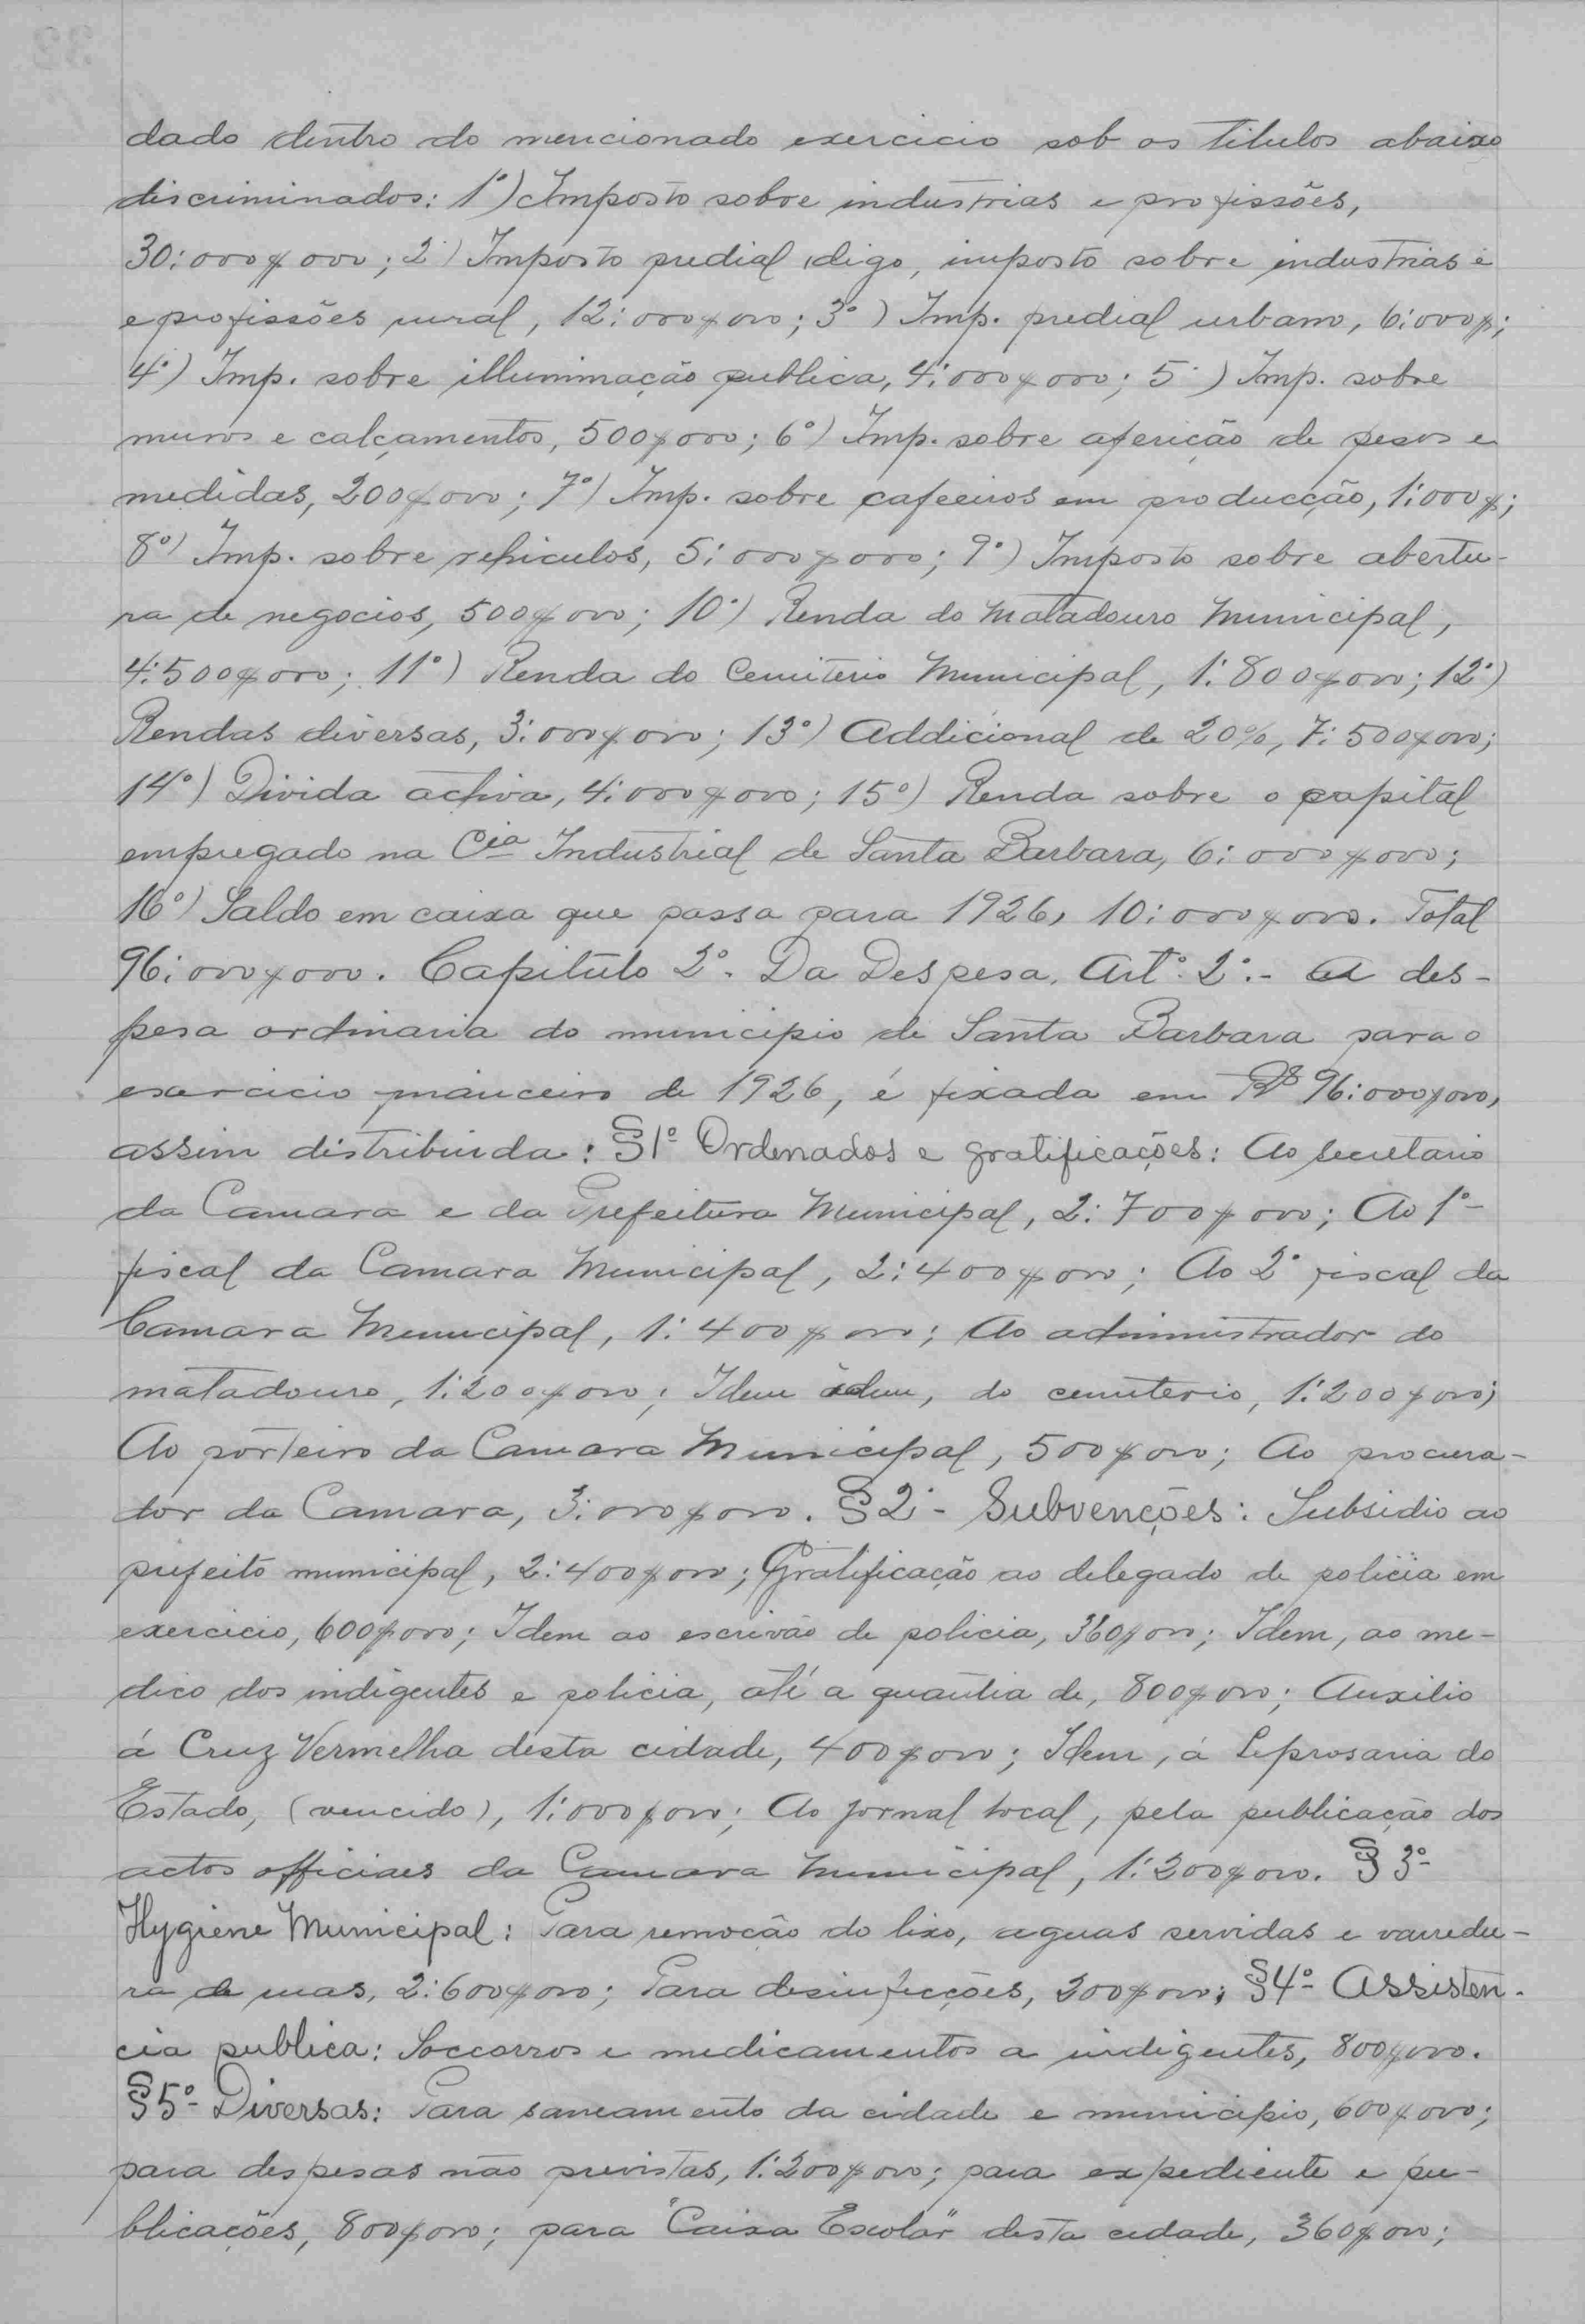 dado dentro do mencionado exercicio sob os titulos abaixo
discriminados: 1º) Imposto sobre industrias e profissões,
30:000$000; 2º) Imposto predial, digo, imposto sobre industrias e
e profissões rural, 12:000$000; 3º) Imp. predial urbano, 6:000$;
4º) Imp. sobre illuminação publica, 4:000$000; 5º) Imp. sobre
muros e calçamentos, 500$000; 6º) Imp. sobre aferição de pesos e
medidas, 200$000; 7º) Imp. sobre cafeeiros em producção, 1:000$;
8º) Imp. sobre vehiculos, 5:000$000; 9º) Imposto sobre abertu-
ra de negocios, 500$000; 10º) Renda do Matadouro Municipal,
4:500$000; 11º) Renda do Cemiterio Municipal, 1:800$000; 12º)
Rendas diversas, 3:000$000; 13º) Addicional de 20%, 7:500$000;
14º) Divida activa, 4:000$000; 15º) Renda sobre o capital
empregado na Cia Industrial de Santa Barbara, 6:000$000;
16º) Saldo em caixa que passa para 1926, 10:000$000. Total
96:000$000. Capitulo 2º. Da Despesa. Artº. 2º.- A des-
pesa ordinaria do municipio de Santa Barbara para o
exercicio financeiro de 1926, é fixada em Rs 96:000$000,
assim distribuida: §1º Ordenados e gratificações: Ao secretario
da Camara e da Prefeitura Municipal, 2:700$000; Ao 1º
fiscal da Camara Municipal, 2:400$000; Ao 2º fiscal da
Camara Municipal, 1:400$000; Ao administrador do
matadouro, 1:200$000; Idem idem, do cemiterio, 1:200$000;
Ao porteiro da Camara Municipal, 500$000; Ao procura-
dor da Camara, 3:000$000. §2º- Subvenções: Subsidio ao
prefeito municipal, 2:400$000; Gratificação ao delegado de policia em
exercicio, 600$000; Idem ao escrivão de policia, 360$000; Idem, ao me-
dico dos indigentes e policia, até a quantia de, 800$000; Auxilio
á Cruz Vermelha desta cidade, 400$000; Idem, á Leprosaria do
Estado, (vencido), 1:000$000; Ao jornal local, pela publicação dos
actos officiaes da Camara Municipal, 1:200$000. § 3º-
Hygiene Municipal: Para remoção do lixo, aguas servidas e varredu-
ra de ruas, 2:600$000; Para desinfecções, 200$000; §4º- Assisten-
cia publica: Soccorros e medicamentos a indigentes, 800$000.
§5º- Diversas: Para saneamento da cidade e municipio, 600$000;
para despesas não previstas, 1:200$000; para expediente e pu-
blicações, 800$000; para "Caixa Escolar" desta cidade, 360$000;